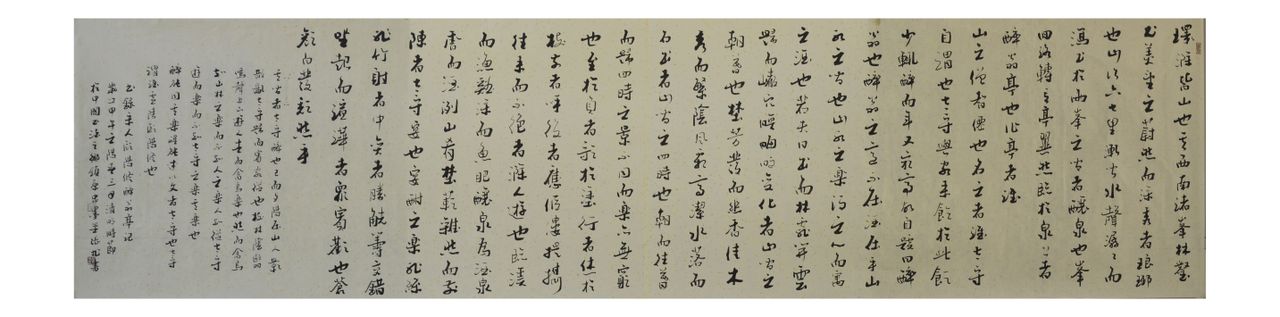 環滁皆山也其西南諸峯林壑
尤美望之蔚然而深秀者琅琊
也山行六七里漸聞水聲潺〻而
瀉出於兩峯之間者釀泉也峯
回路轉有亭翼然臨於泉上者
醉翁亭也作亭者誰
山之僧智僊也名之者誰太守
自謂也太守與客來飲於此飲
少輒醉而年又最高故自號曰醉
翁也醉翁之意不在酒在乎山
水之間也山水之樂得之心而寓
之酒也若夫日出而林霏開雲
歸而巖穴暝晦明變化者山間之
朝暮也野芳發而幽香佳木
秀而繁陰風霜高潔水落而
石出者山間之四時也朝而往暮
而歸四時之景不同而樂亦無窮
也至於負者歌於塗行者休於
樹前者呼後者應傴僂提攜
往來而不絕者滁人遊也臨溪
而漁溪深而魚肥釀泉為酒泉
香而酒洌山肴野蔌雜然而前
陳者太守宴也宴酣之樂非絲
非竹射者中弈者勝觥籌交錯
坐起而諠譁者衆賓歡也蒼
顏白髮頹然乎
其間者太守醉也已而夕陽在山人影
散亂太守歸而賓客從也樹林陰翳
鳴聲上下遊人去而禽鳥樂也然而禽鳥
知山林之樂而不知人之樂人知從太守
遊而樂而不知太守之樂其樂也
醉能同其樂醒能述以文者太守也太守
謂誰廬陵歐陽修也
書錄宋人歐陽修醉翁亭記
歲次甲午之陽春三月清明時節
於中國書法之鄉 書